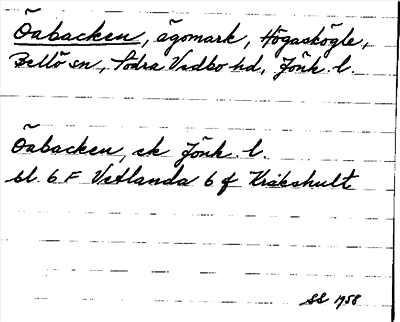 Öabacken, ägomark, Högaskögle,
Bellö sn, Södra Vedbo hd, Jönk. l.
Öabacken, ek Jönk. l.
bl. 6 F Vetlanda 6 f Kråkshult
SS 1958